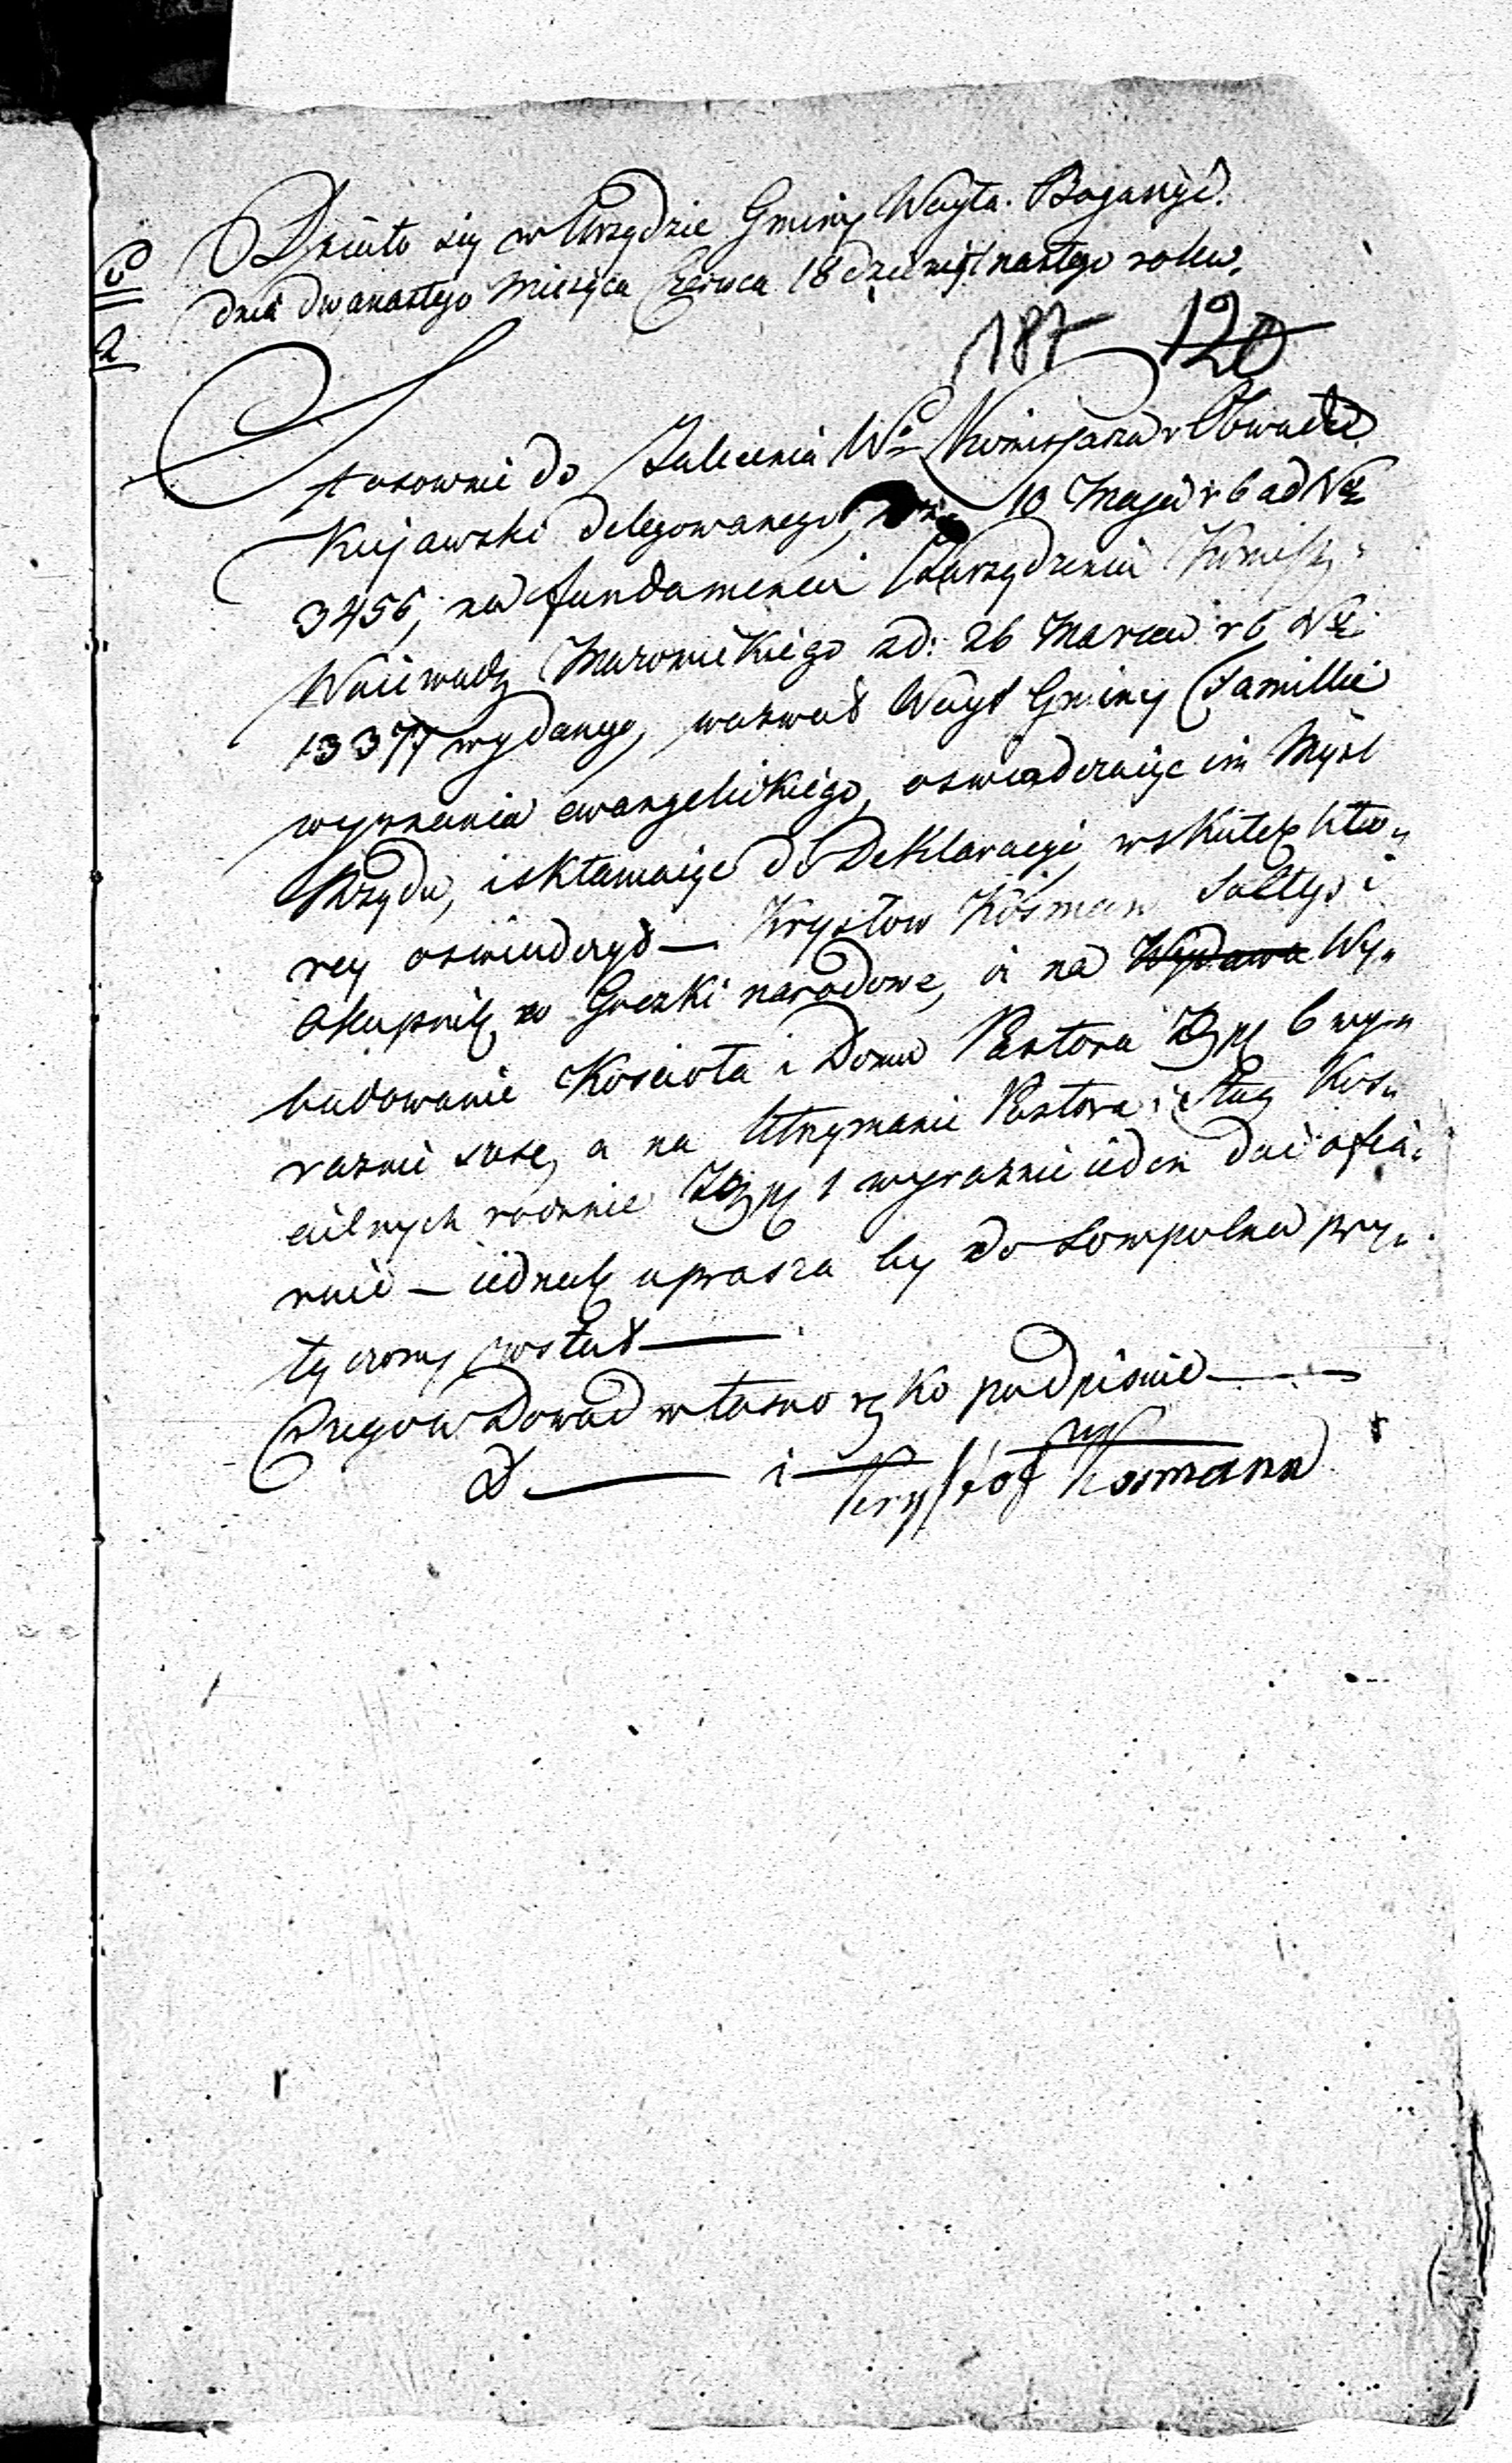 Działo się w Urzędzie Gminy Woyta Boguszyc
dnia dwanastego Miesiąca Czerwca 18 dziewiętnastego roku.
187 120
Stosownie do Zalecenia Wo Kommissarza Obwodu
Kujawski delegowanego, 10 Maja r b ad No
3456, na fundamencie Zarządzenia Kommissyi
Woiewodz Mazowieckiego z d: 26 Marca r b No
13377 wydanego, wezwał Woyt Gminy Familie
wyznania ewangelickiego, oswiadczaiąc im Mysl
Rządu, i skłaniaiąc do Deklaracyi, w skutek któ„
rey oswiadczył — Krysztow Kosman Sołtys i
Okupnik z Grczki narodowe, iż na Wydawa Wy„
budowanie Koscioła i Domu Pastora Tal 6 wy„
raznie szesc, a na Utrzymanie Pastora i Sług Kos„
cielnych rocznie Tal 1 wyraznie ieden dać ofia„
ruie — iednak uprasza by do Sompolna przy„
łączony został —
Czego w Dowod własno ręko podpisuie —
d — i — Krysztof Kosmann